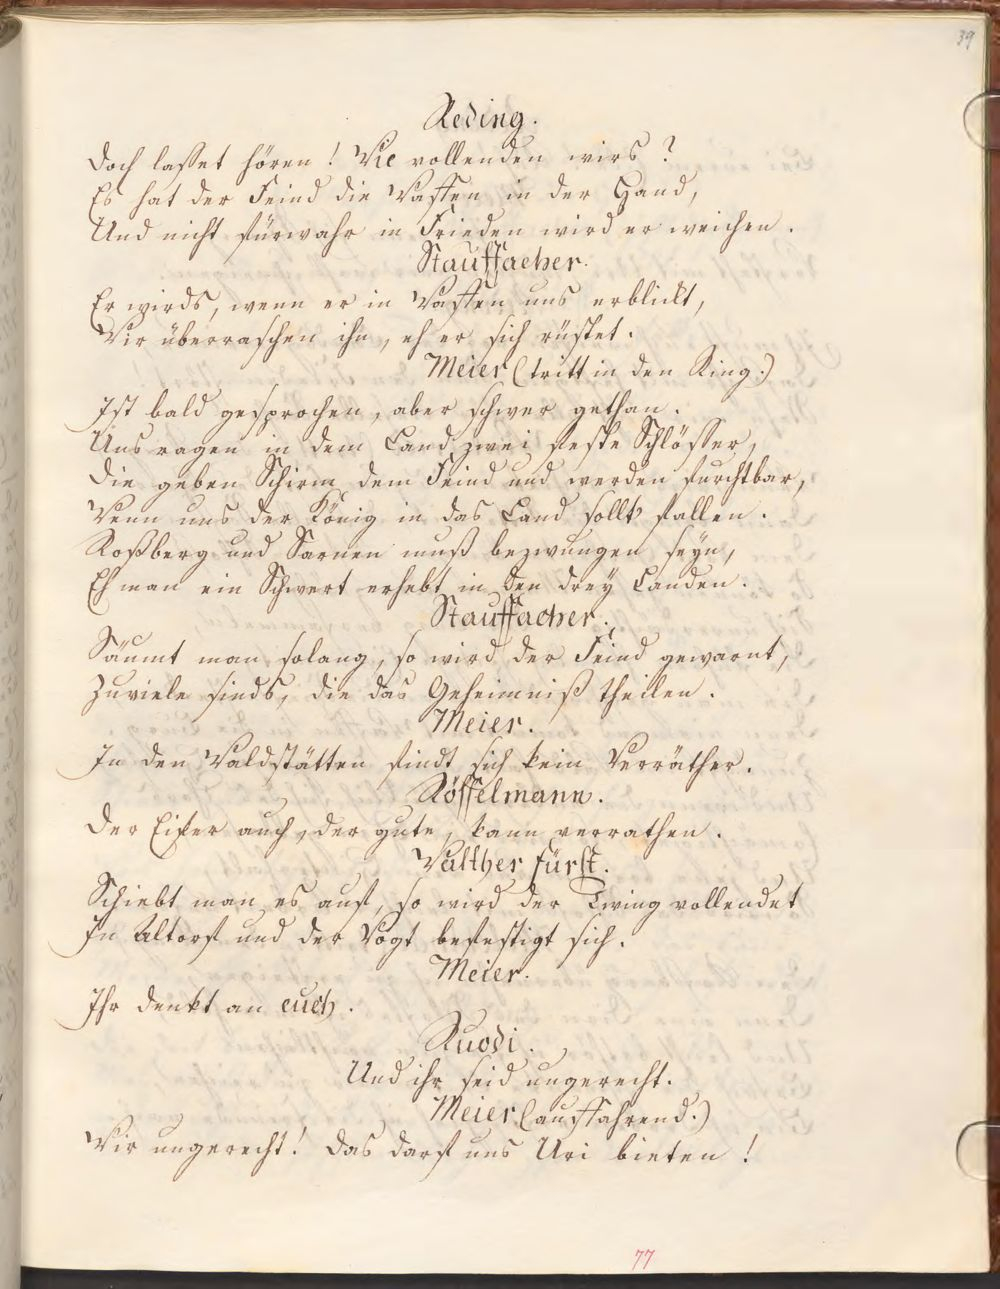 39
Reding.
Doch lasset hören! Wie vollenden wirs?
Es hat der Feind die Waffen in der Hand,
Und nicht fürwahr in Frieden wird er weichen.
Stauffacher.
Er wirds, wenn er in Waffen uns erblickt,
Wir überraschen ihn, eh er sich rüstet.
Meier (tritt in den Ring.)
Ist bald gesprochen, aber schwer gethan.
Uns ragen in dem Land zwei feste Schlösser,
Die geben Schirm dem Feind und werden furchtbar,
Wenn uns der König in das Land sollt' fallen.
Roßberg und Sarnen muß bezwungen seyn,
Eh man ein Schwert erhebt in den drey Landen.
Stauffacher.
Säumt man solang, so wird der Feind gewarnt,
Zuviele sinds, die das Geheimniß theilen.
Meier.
In den Waldstätten findt sich kein Verräther.
Rösselmann.
Der Eifer auch, der gute, kann verrathen.
Walther Fürst.
Schiebt man es auf, so wird der Twing vollendet
In Altorf und der Vogt befestigt sich.
Meier.
Ihr denkt an euch.
Ruodi.
Und ihr seid ungerecht.
Meier (auffahrend.)
Wir ungerecht! Das darf uns Uri bieten!
77